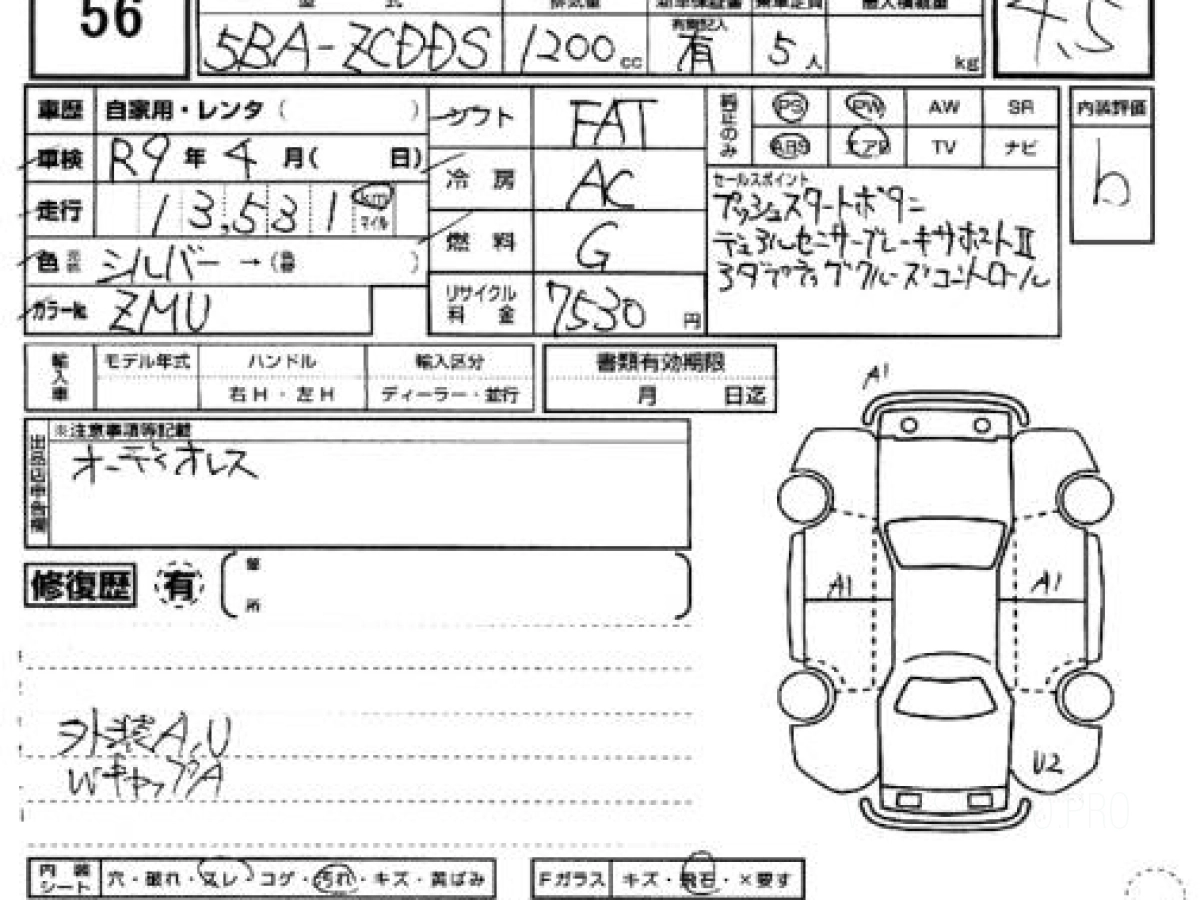 56
型 式 排気量 新車保証書 乗車定員 最大積載量
有無記入
5BA-ZCDDS 1200 cc 有 5 人 kg
4.5
車歴 自家用・レンタ ( )
シフト FAT
純正のみ PS PW AW SR
ABS エアB TV ナビ
内装評価
b
車検 R9 年 4 月( 日)
冷房 AC
走行 13,531 km マイル
燃料 G
色 シルバー → ( )
カラー№ ZMU
リサイクル料金 7530 円
セールスポイント
プッシュスタートボタン
デュアルセンサーブレーキサポートⅡ
アダプティブクルーズコントロール
輸入車 モデル年式 ハンドル 輸入区分
右H・左H ディーラー・並行
書類有効期限
月 日迄
出品店申告欄
※注意事項等記載
オーディオレス
修復歴 有
箇所
外装A,U
WキャップA
A1
A1 A1
U2
内装シート 穴・破れ・スレ・コゲ・汚れ・キズ・黄ばみ
Fガラス キズ・飛石・×要す